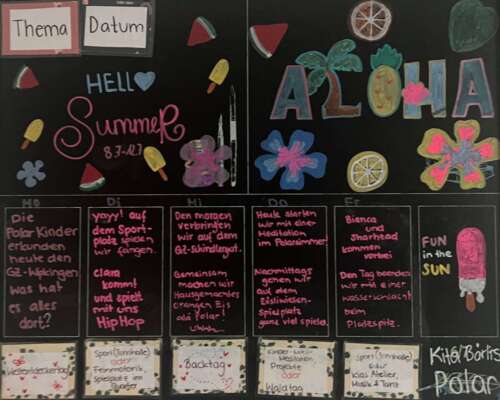 Thema
Datum
HELLO
Summer
8.7-12.7
ALOHA
Mo
Di
Mi
Do
Fr
Die
Polar Kinder
erkunden
heute den
GZ-Wipkingen.
was hat
er alles
dort?
yayy! auf
dem Sport-
platz spielen
wir fangen.
Clara
kommt
und spielt
mit uns
Hip Hop
Den morgen
verbringen
wir auf dem
GZ-Schindlergut.
Gemeinsam
machen wir
Hausgemachtes
oranges Eis
ala Polar!
Heute starten
wir mit einer
Meditation
im Polarzimmer.
Nachmittags
gehen wir
auf dem
Spielplatz
ganz viel spielen.
Bianca
und
kommen
vorbei
Den Tag beenden
wir mit einer
wasserschlacht
beim
Platzspitz.
FUN
in the
SUN
Weltentdeckertag
Sport (Turnhalle)
oder
Feinmotorik,
Backtag
Projekte
oder
Waldtag
Sport (Turnhalle)
oder
Kids Atelier,
Musik & Tanz
Polar